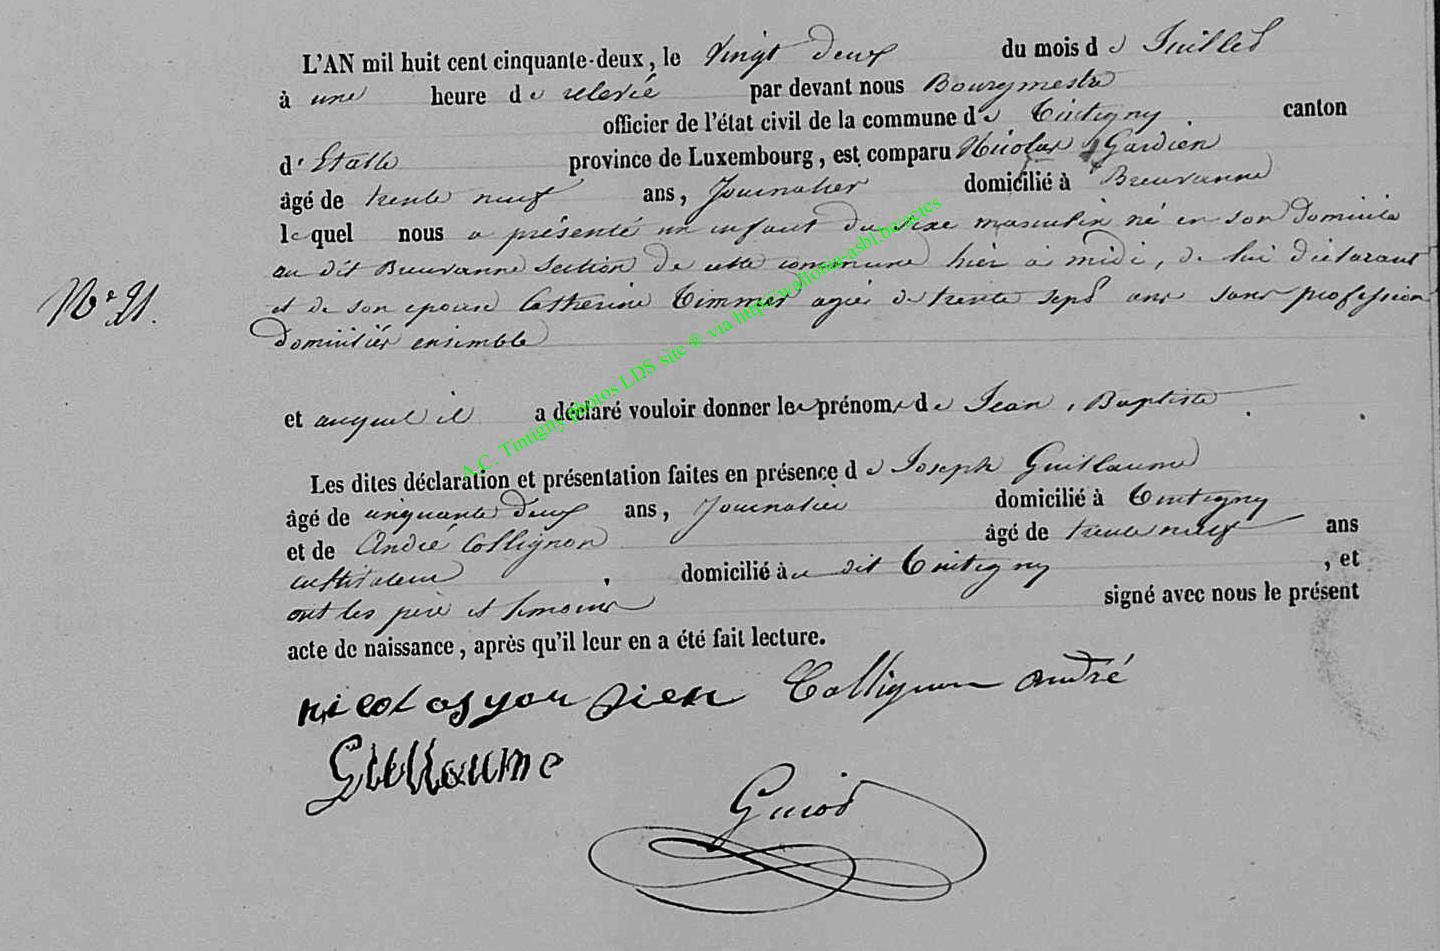 L'AN mil huit cent cinquante-deux, le Vingt Deux du mois de Juillet
à une heure de relevée par devant nous Bourgmestre
officier de l'état civil de la commune de Tintigny canton
d'Etalle province de Luxembourg, est comparu Nicolas Gardien
âgé de trente neuf ans, Journalier domicilié à Breuvanne
lequel nous a présenté un enfant du sexe masculin né en son domicile
au dit Breuvanne Section de cette commune hier à midi, de lui déclarant
No 21.
et de son épouse Catherine Timmer agée de trente sept ans sans profession
domiciliés ensemble
et auquel il a déclaré vouloir donner les prénoms de Jean, Baptiste
Les dites déclaration et présentation faites en présence de Joseph Guillaume
âgé de cinquante deux ans, Journalier domicilié à Tintigny
et de André Collignon âgé de trente neuf ans
instituteur, domicilié à dit Tintigny, et
ont les père et témoins signé avec nous le présent
acte de naissance, après qu'il leur en a été fait lecture.
nicolas Collignon andré
Guillaume
Guiot
A.C. Tintigny photos LDS site ® via